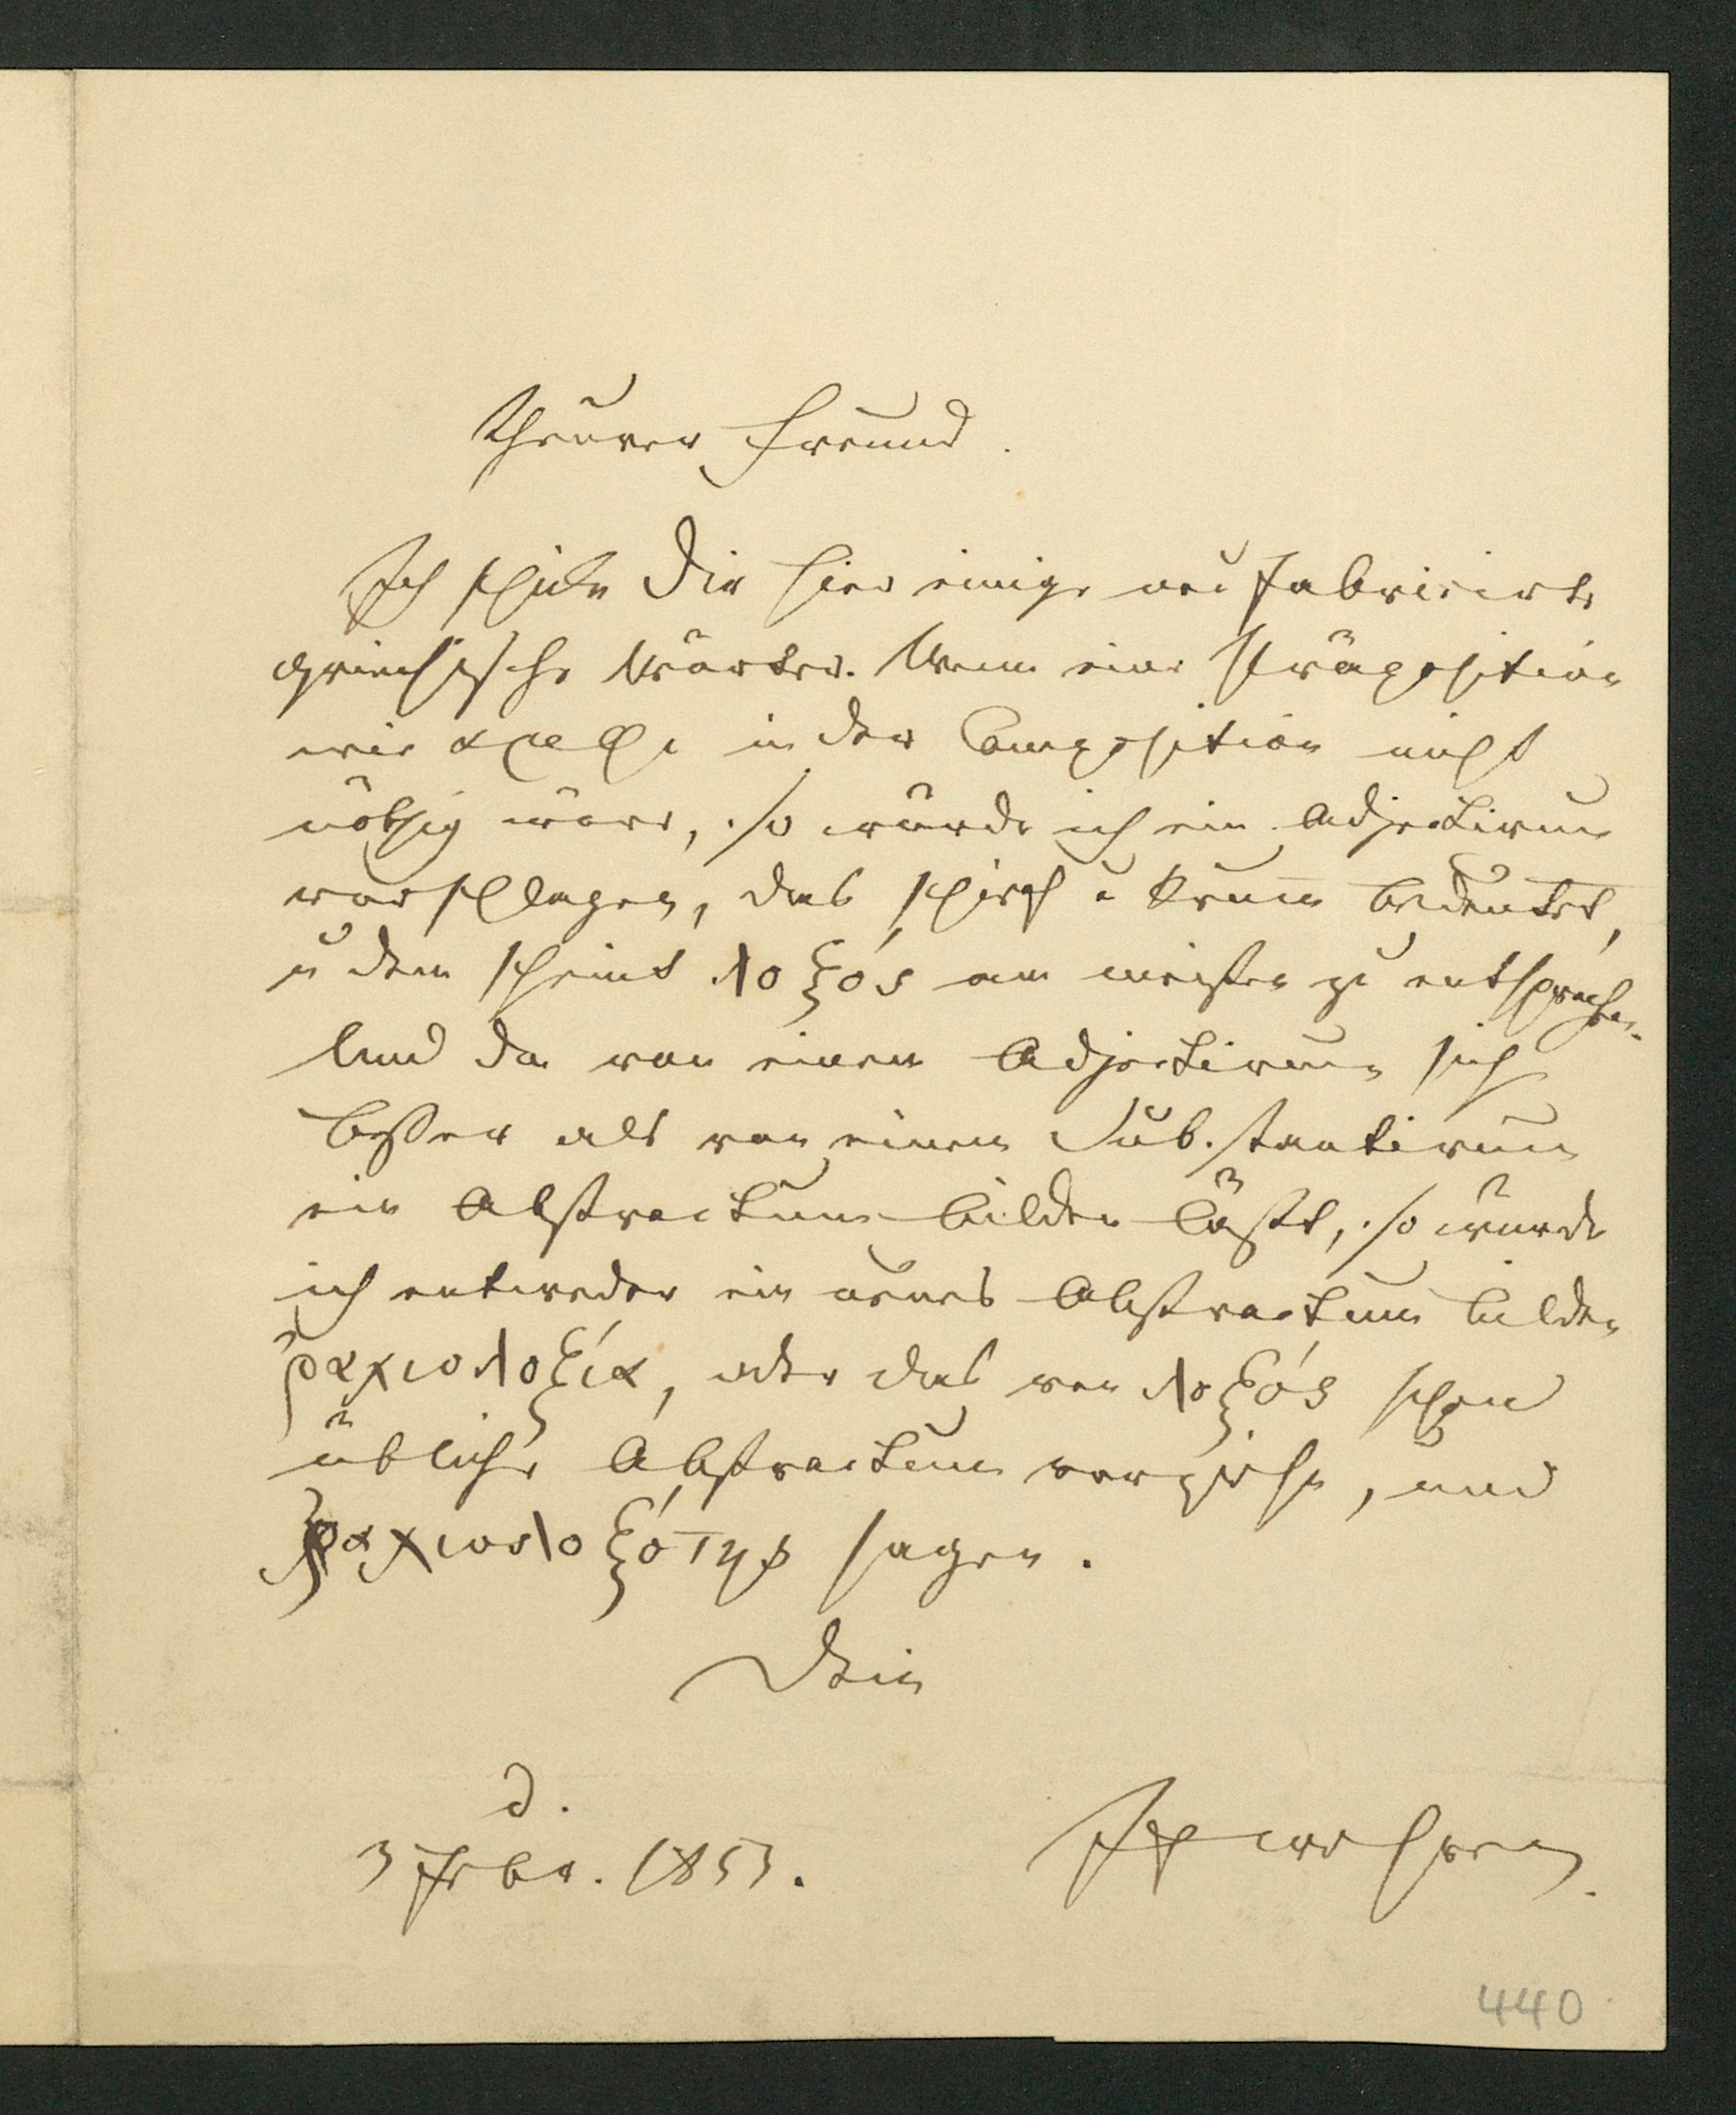 Theurer Freund.
Ich schicke Dir hier einige neu fabricirte
griechische Wörter. Wenn eine Präposition
wie αμφι in der Composition nicht
nöthig wäre, so würde ich ein Adjectivum
vorschlagen, das schief u krum̅ bedeutet,
u dem scheint λοξός am meisten zu entsprechen.
Und da von einem Adjectivum sich
besser als von einem Substantivum
ein Abstractum bilden läßt, so würde
ich entweder ein neues Abstractum bilden
ῥαχιολοξία, oder das von λοξός schon
übliche Abstractum vorziehn, und
ῥαχιολοξότης sagen.
Dein
d.
3 Febr. 1853.
440